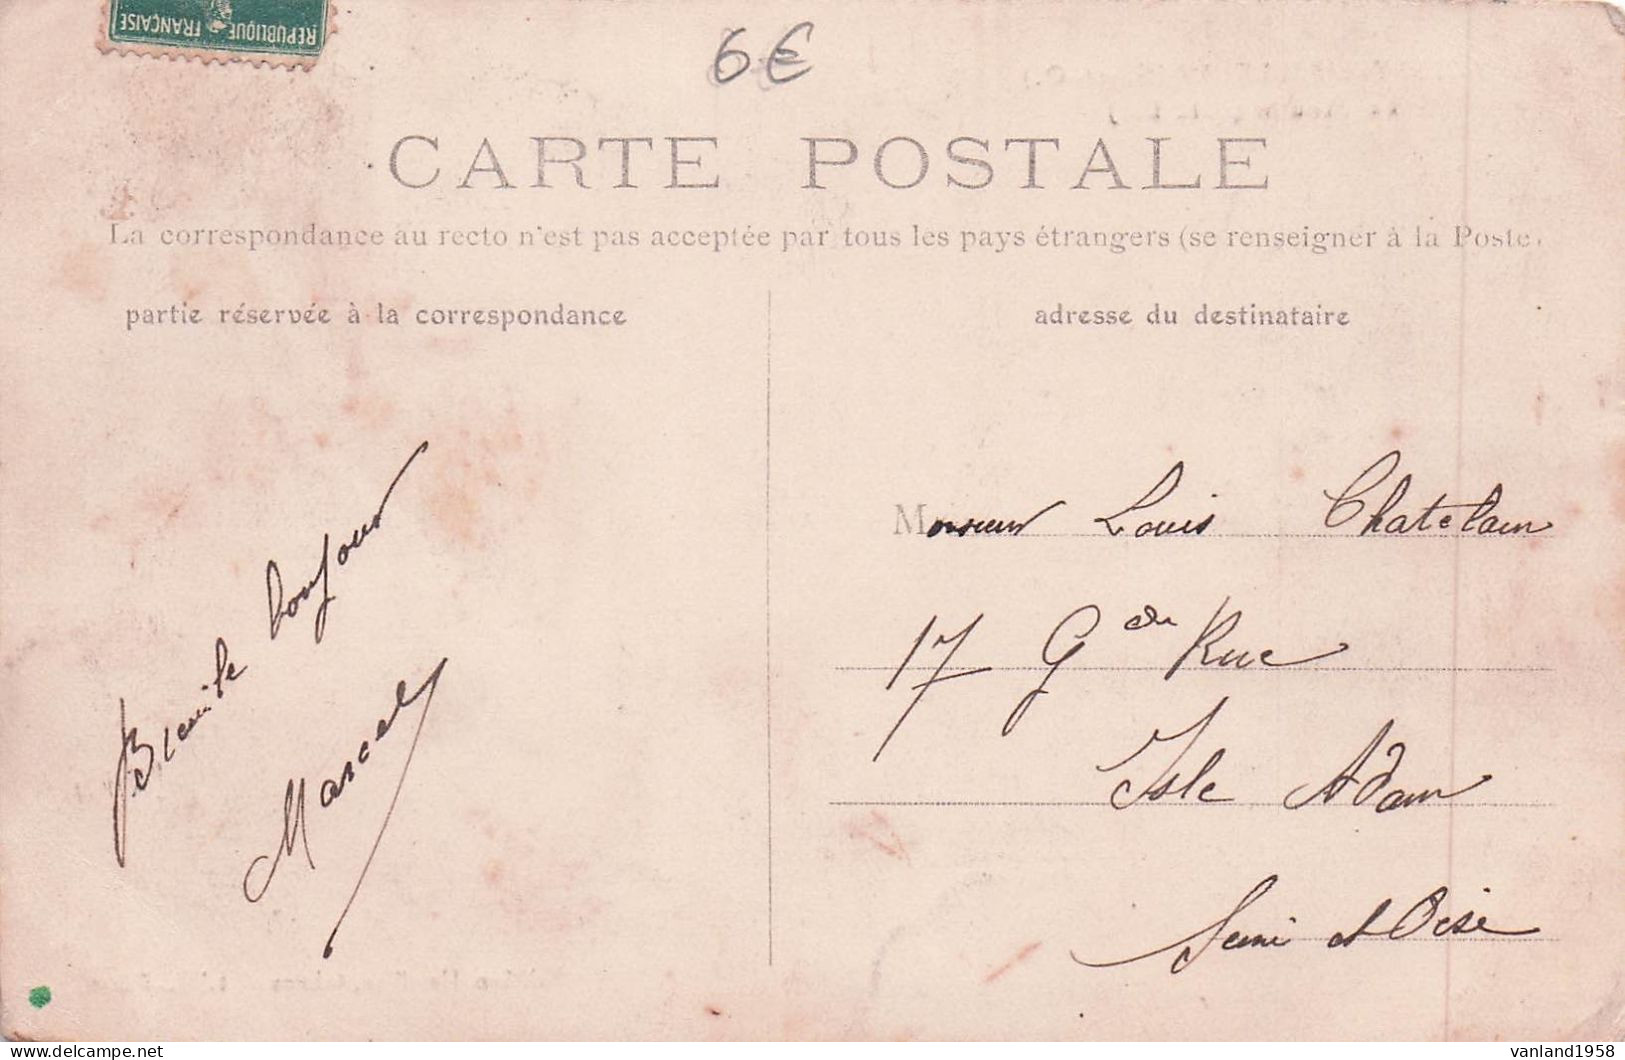 REPUBLIQUE FRANÇAISE
6€
CARTE POSTALE
La correspondance au recto n'est pas acceptée par tous les pays étrangers (se renseigner à la Poste)
partie réservée à la correspondance
adresse du destinataire
bonjour
Marcel
Monsieur Louis Chatelain
17 Gde Rue
Isle Adam
Seine et Oise
vanland1958